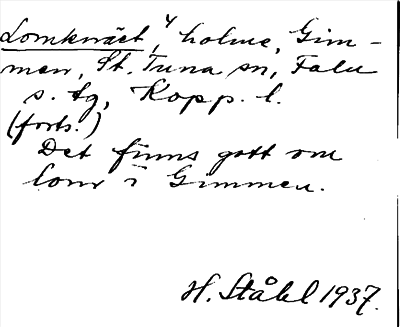 Lomknäet, 4 holme, Gim-
men, St. Tuna sn, Falu
s. tg, Kopp. l.
(forts.)
Det finns gott om
lom i Gimmen.
H. Ståhl 1937.